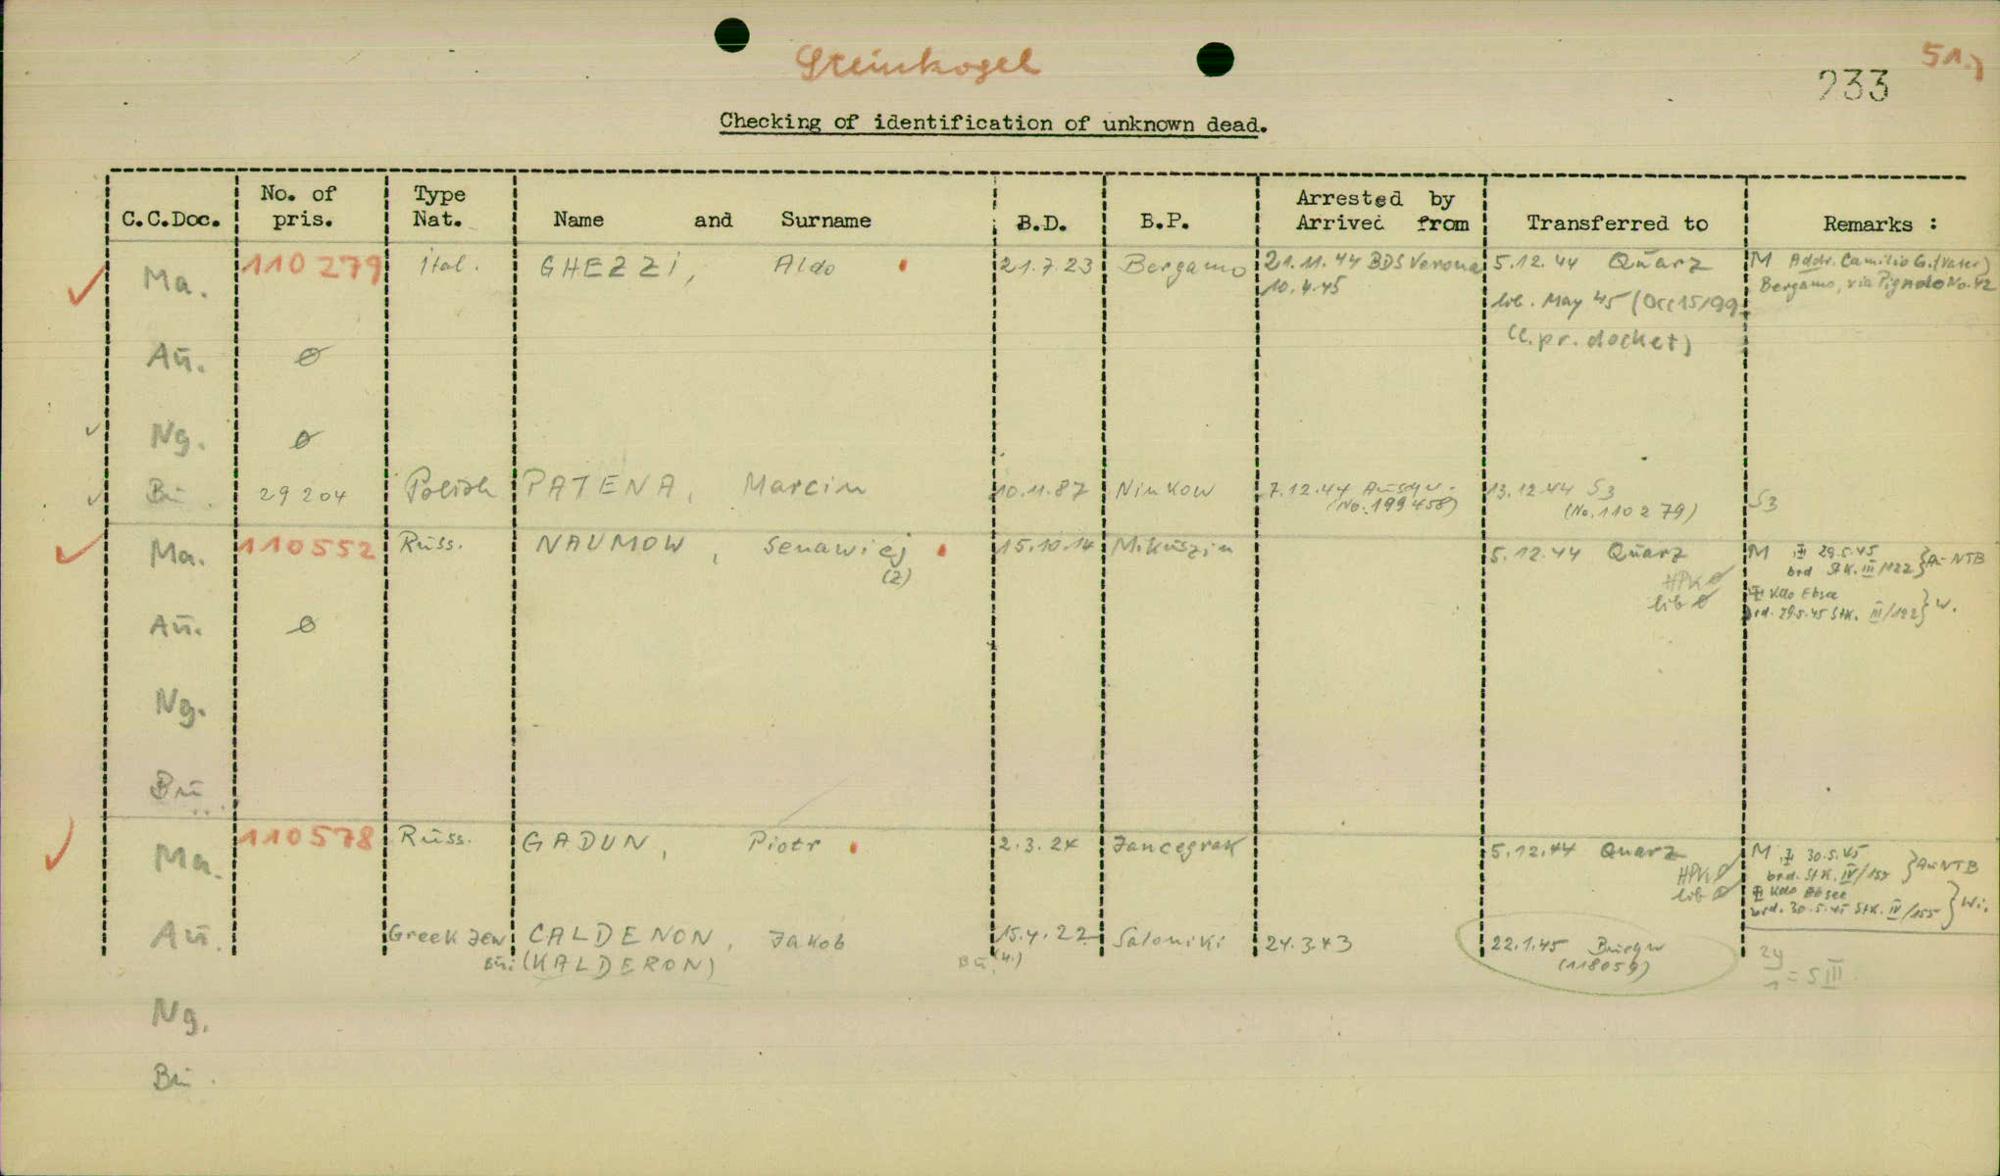 Steinkogel
51.)
233
Checking of identification of unknown dead.
C.C.Doc. No. of pris. Type Nat. Name and Surname B.D. B.P. Arrested by Arrived from Transferred to Remarks :
Ma. 110279 ital. GHEZZI, Aldo 21.7.23 Bergamo 21.11.44 BDS Verona 5.12.44 Quarz M Addr. Camilio G. (Vater)
10.4.45 lib. May 45 (Occ 15/99 Bergamo, via Pignolo No. 42
(c.pr. docket)
Aū. ø
Ng. ø
Bu. 29204 Polish PATENA, Marcin 10.11.87 Ninkow 7.12.44 Auschw. 13.12.44 S3 S3
(No. 199458) (No. 110279)
Ma. 110552 Rūss. NAUMOW, Senawiej 15.10.14 Mikuszin 5.12.44 Quarz M 29.5.45
(2) HPK ø brd StK. III/122 } Au-NTB
lib ø Kdo Ebsee
brd. 29.5.45 StK. III/122 } W.
Aū. ø
Ng.
Bū
Ma. 110578 Rūss. GADUN, Piotr 2.3.24 Jancegrak 5.12.44 Quarz M 30.5.45
HPK ø brd. StK. IV/155 } Au NTB
lib ø Kdo Ebsee
brd. 30.5.45 StK. IV/155 } Wi.
Aū. Greek Jew CALDENON, Jakob 15.4.22 Saloniki 24.3.43 22.1.45 Buchw
Bū: (KALDERON) Bū. (4.) (118059) = SIII
Ng.
Bū.